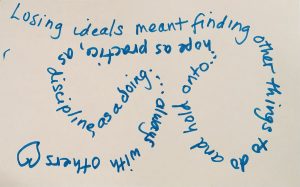 Losing ideals meant finding
other things to do
and hold onto...
hope as practice, as
discipline, as a doing...
always with others